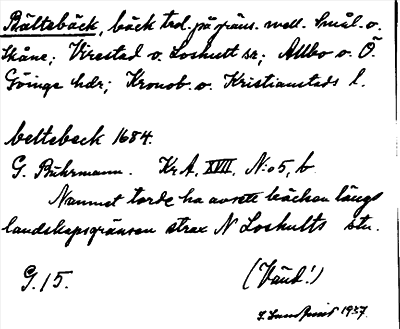 Bältebäck, bäck trol. på gräns. mell. Smål. o.
Skåne; Virestad o. Loshult sn; Allbo o. Ö.
Göinge hdr; Kronob. o. Kristianstads l.
beltebeck 1684.
G. Buhrmann. Kr.A. XVIII, N:o 5, b.
Namnet torde ha avsett bäcken längs
landskapsgränsen strax N Loshults stn.
G. 15. (Vänd!)
1937